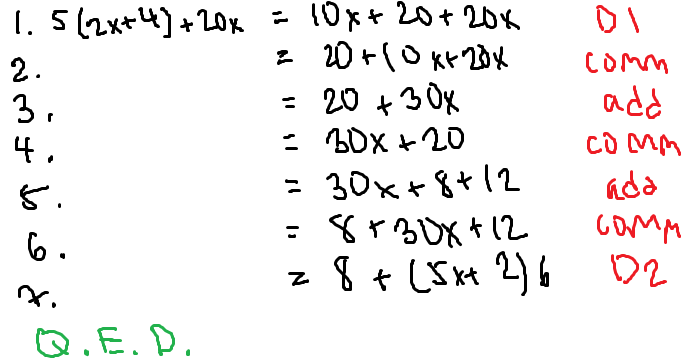 1. 5(2x+4)+20x = 10x+20+20x D1
2. = 20+10x+20x comm
3. = 20+30x add
4. = 30x+20 comm
5. = 30x+8+12 add
6. = 8+30x+12 comm
7. = 8+(5x+2)6 D2
Q.E.D.